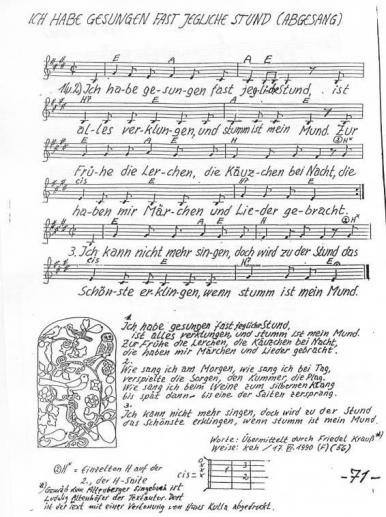 ICH HABE GESUNGEN FAST JEGLICHE STUND (ABGESANG)
E A E
1.(u.2) Ich ha-be ge-sun-gen fast jegliche Stund, ist
H7 E A E
al-les ver-klun-gen, und stumm ist mein Mund. Zur
E A E H
Frü-he die Ler-chen, die Käuz-chen bei Nacht, die
cis H7 E
ha-ben mir Mär-chen und Lie-der ge-bracht.
3. Ich kann nicht mehr sin-gen, doch wird zu der Stund das
cis E H7 A E
Schön-ste er-klin-gen, wenn stumm ist mein Mund.
1.
Ich habe gesungen fast jegliche Stund,
ist alles verklungen, und stumm ist mein Mund.
Zur Frühe die Lerchen, die Käuzchen bei Nacht,
die haben mir Märchen und Lieder gebracht.
2.
Wie sang ich am Morgen, wie sang ich bei Tag,
verspielte die Sorgen, den Kummer, die Plag.
Wie sang ich beim Weine zum silbernen Klang
bis spät dann - bis eine der Saiten zersprang.
3.
Ich kann nicht mehr singen, doch wird zu der Stund
das Schönste erklingen, wenn stumm ist mein Mund.
Worte: Übermittelt durch Friedel Krauß *)
Weise: keh / 17. VI. 1990 (F) (56)
② H" = Einzelton H auf der
2., der H-Saite
cis =
*) Gemäß dem Altenberger Singebuch ist
Ludwig Altenhöfer der Textautor. Dort
ist der Text mit einer Vertonung von Hans Kulla abgedruckt.
-71-